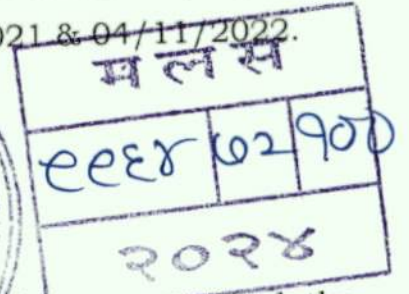 021 & 04/11/2022.
म ल स
९९६४ ७२ १००
२०२४